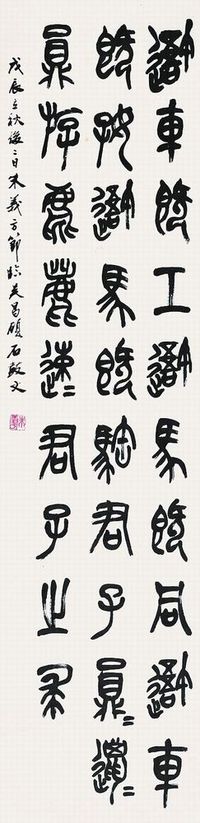 䢒車既工䢒馬既同䢒車
既好䢒馬既駓君子員=邋=
員斿麀鹿速=君子之求
戊辰立秋後二日朱義方節臨吳昌碩石鼓文